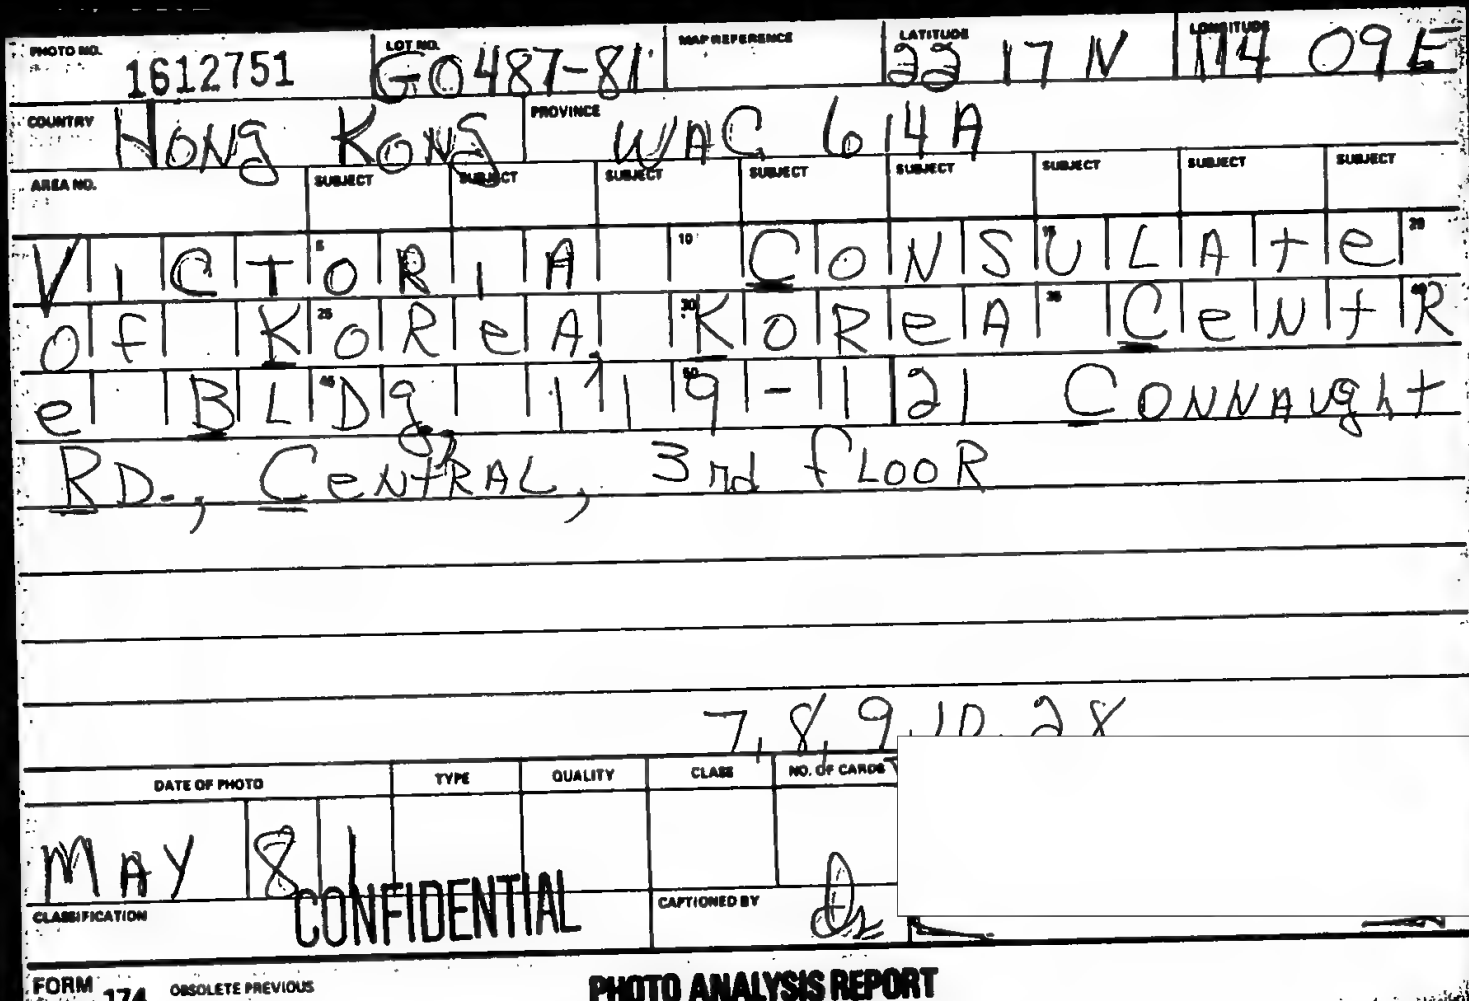 PHOTO NO. LOT NO. MAP REFERENCE LATITUDE LONGITUDE
1612751 GO487-81 22 17 N 114 09 E
COUNTRY Hong Kong PROVINCE WAC 614A
AREA NO. SUBJECT SUBJECT SUBJECT SUBJECT SUBJECT SUBJECT SUBJECT SUBJECT
5 10 15 20
VICTORIA CONSULAte
25 30 35 40
of KOReA, KOReA CeNtR
45 50
e BLDg, 119-121 CONNAught
RD., CeNtRAL, 3rd fLOOR
7, 8, 9, 10, 28
DATE OF PHOTO TYPE QUALITY CLASS NO. OF CARDS
MAY 81
CLASSIFICATION CONFIDENTIAL CAPTIONED BY
FORM 174 OBSOLETE PREVIOUS PHOTO ANALYSIS REPORT